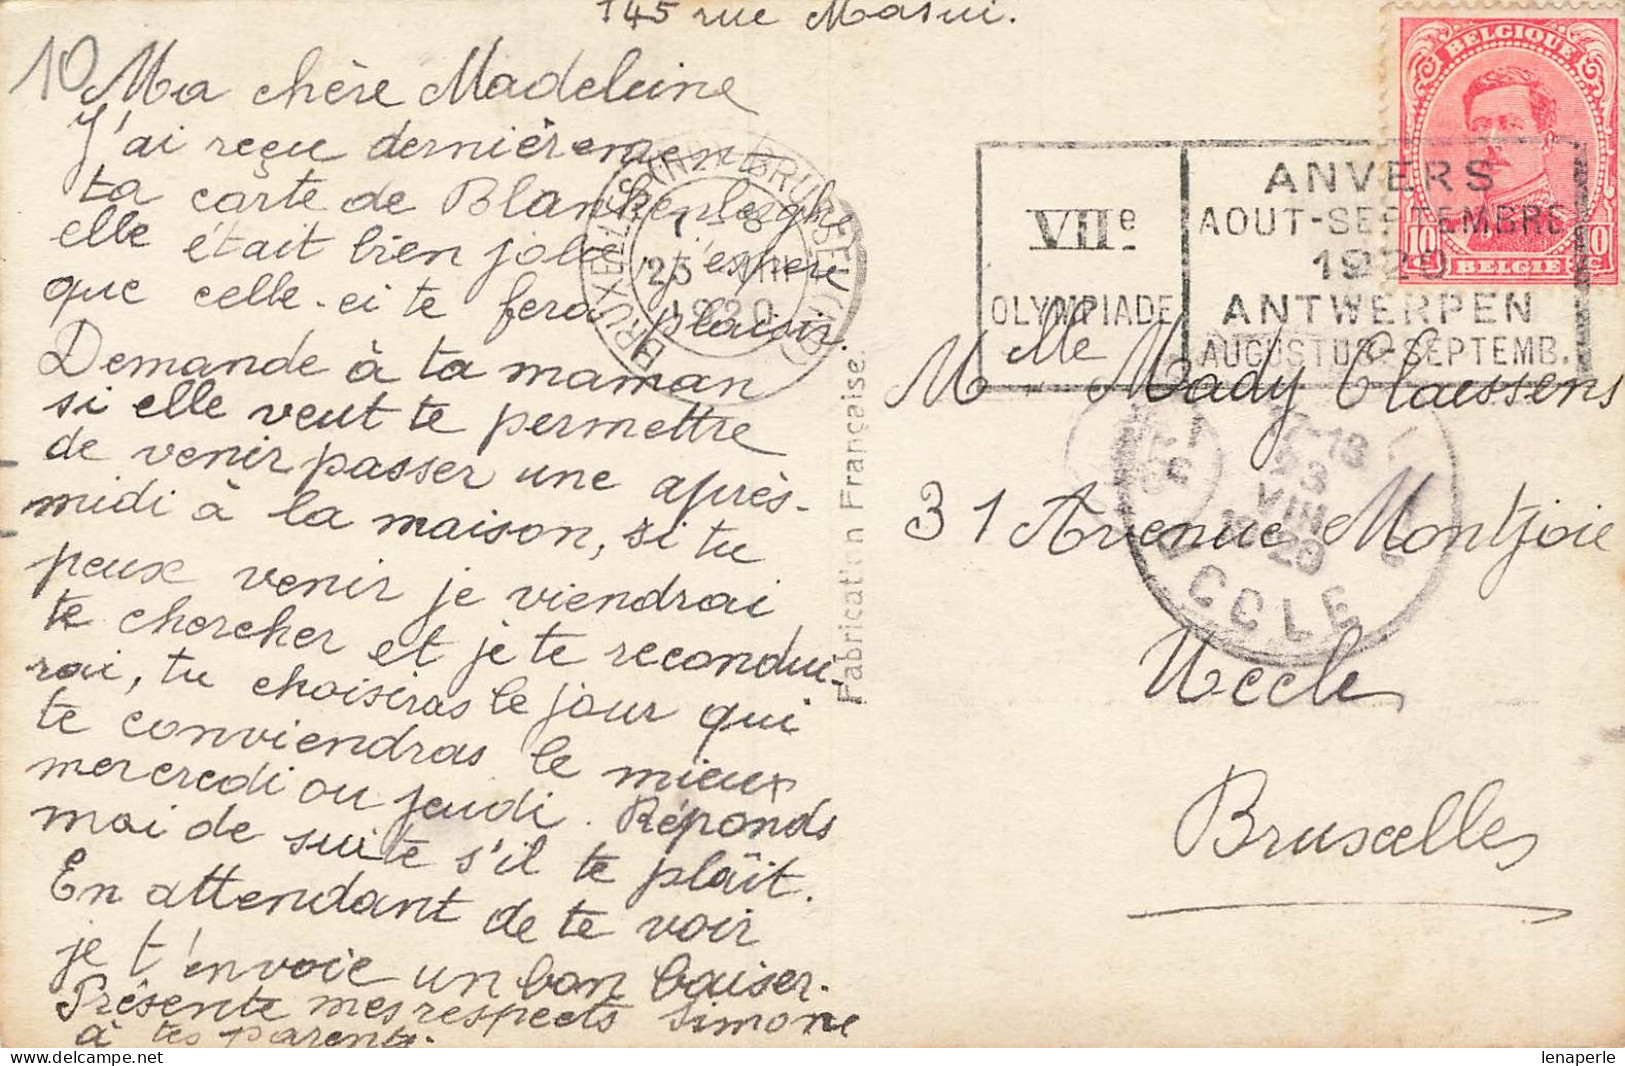 145 rue Masui.
10
Ma chère Madeleine
J'ai reçu dernièrement
ta carte de Blankenberghe
elle était bien jolie j'espère
que celle-ci te fera plaisir.
Demande à ta maman
si elle veut te permettre
de venir passer une après-
midi à la maison, si tu
peux venir je viendrai
te chercher et je te recondui-
rai, tu choisiras le jour qui
te conviendras le mieux
mercredi ou jeudi. Réponds
moi de suite s'il te plâit.
En attendant de te voir
je t'envoie un bon baiser.
Présente mes respects Simone
à tes parents.
Fabrication Française.
BELGIQUE
10 c 10 c
BELGIË
VIIe
OLYMPIADE
ANVERS
AOUT-SEPTEMBRE
1920
ANTWERPEN
AUGUSTUS-SEPTEMB.
BRUXELLES BRUSSEL
25 VIII
1920
Melle Mady Claessens
31 Avenue Montjoie
Uccle
Bruxelles
VIII
20
UCCLE
lenaperle